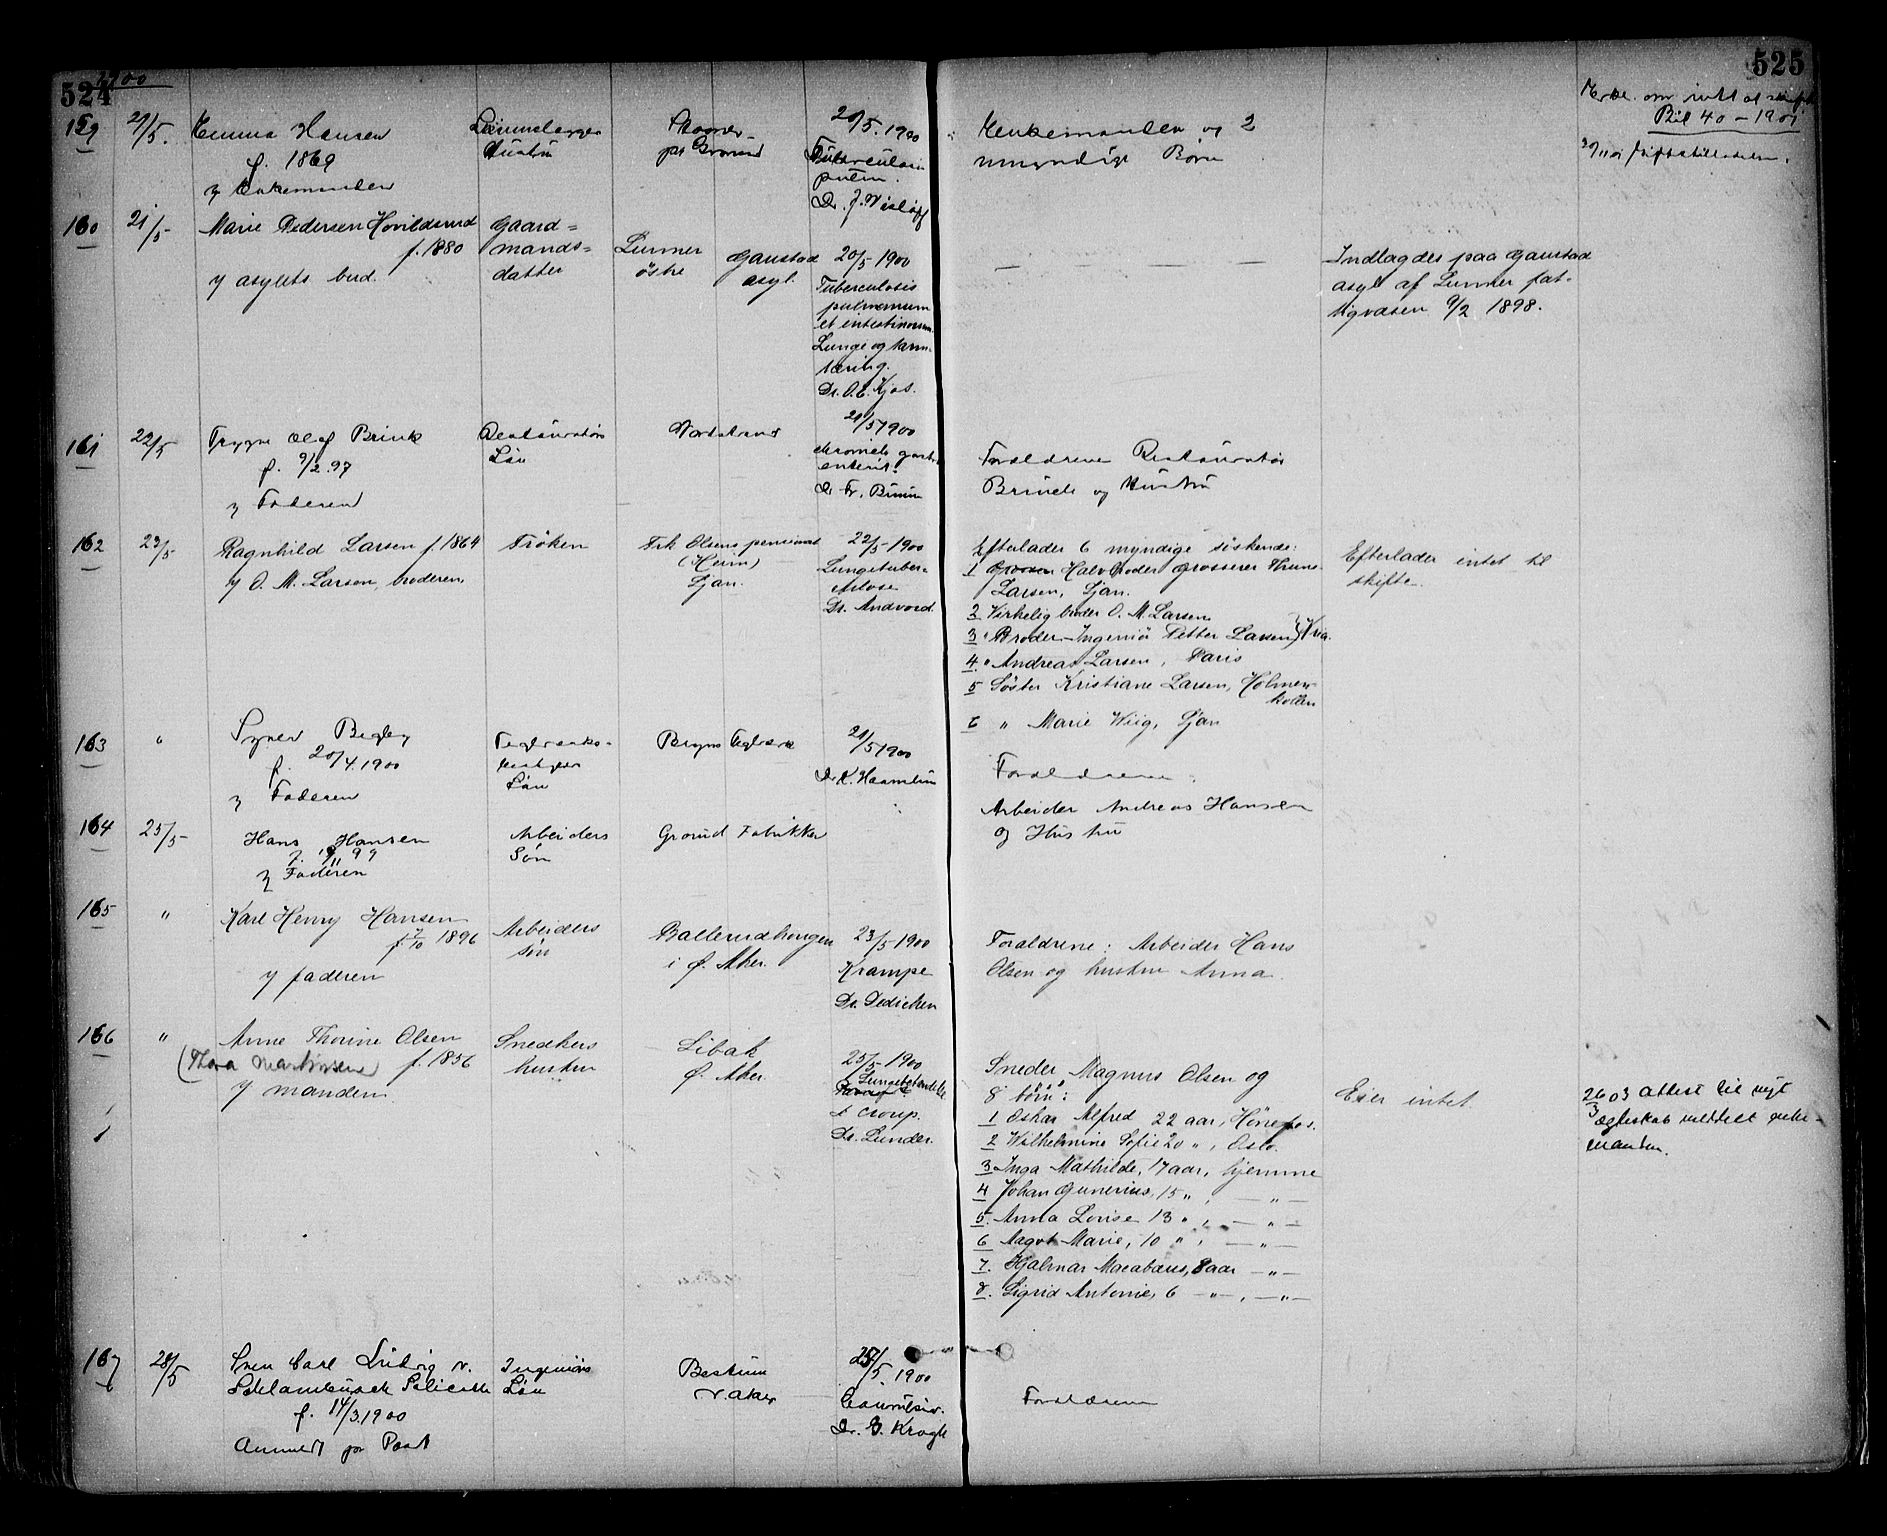 524
1900
525
159
21/5.
Emma Hansen
f. 1869
v Enkemanden
Hustru
20/5. 1900
Tuberculosis
pulm.
Dr. J. Wisløff
Enkemanden og 2
umyndige Børn
Bil 40-1901
160
21/5
Marie Pedersen Hovildsrud
f. 1880
v asylets bud.
Gaard=
mands=
datter
Lunner
østre
Gaustad
asyl.
20/5 1900
Tuberculosis
pulmonum
et intestinorum.
Lunge og tarm-
tæring.
Dr. O. E. Kjos.
— — —
Indlagdes paa Gaustad
asyl af Lunner fat-
tigvæsen 9/2 1898.
161
22/5
Trygve Olaf Brink
f. 9/2.97
v Faderen
Restauratørs
Søn
Nordstrand
21/5 1900
chronisk gastro
enterit.
Forældrene Restauratør
Brinck og Hustru
162
23/5
Ragnhild Larsen f. 1864
v O. M. Larsen, broderen
Frøken
Frk Olsens pensionat
(Heim)
Ljan.
22/5-1900
Lungetuber-
kulose
Dr. Andvord.
Efterlader 6 myndige søskende:
1 Halvbroder grosserer Thrane-
Larsen, Ljan.
2 Virkelig broder O. M. Larsen
3 " Broder Ingeniør Petter Larsen } Kria.
4. " Andreas Larsen, Paris
5 Søster Kristiane Larsen, Holmen-
kollen
6 " Marie Wiig, Ljan
Efterlader intet til
skifte.
163
"
f. 20/4.1900
v Faderen
Teglverks-
Søn
Bryns Teglverk
21/5 1900
Forældrene
164
25/5
Hans Hansen
v Faderen
Arbeiders
Søn
Grorud Fabrikker
Arbeider Andreas Hansen
og Hustru
165
"
Karl Henry Hansen
f. 2/10 1896
v faderen
Arbeiders
søn
Ballerudhaugen
i Ø. Aker.
23/5-1900
Krampe
Dr. Dedichen
Forældrene: Arbeider Hans
Olsen og hustru Anna.
166
"
Anne Thorine Olsen
(Thora Martinsen f. 1856
v manden
Snedkers
hustru
Libak
Ø. Aker.
25/5-1900
Lungebetændelse
& croup.
Dr. Lunder.
Sneder Magnus Olsen og
8 børn:
1 Oskar Alfred 22 aar, Hønefos.
2 Wilhelmine Sofie 20 " , Oslo.
3 Inga Mathilde, 17 aar, hjemme
4 Johan Gunerius, 15 " , — " —
5. Anna Lovise 13 " , — " —
6 Aagot Marie, 10 " , — " —
7. Hjalmar Macabæus, 8 aar — " —
8. Sigrid Antonie, 6 — " — , — " —
Eier intet
26/3 03 Attest til nyt
ægteskab meddelt enke-
manden.
167
28/5
Sven Carl Ludvig v.
f. 14/3.1900
Anmeldt pr Post
Ingeniørs
Søn
Bestum
V. Aker
25/5. 1900
Dr. G. Krogh
Forældrene